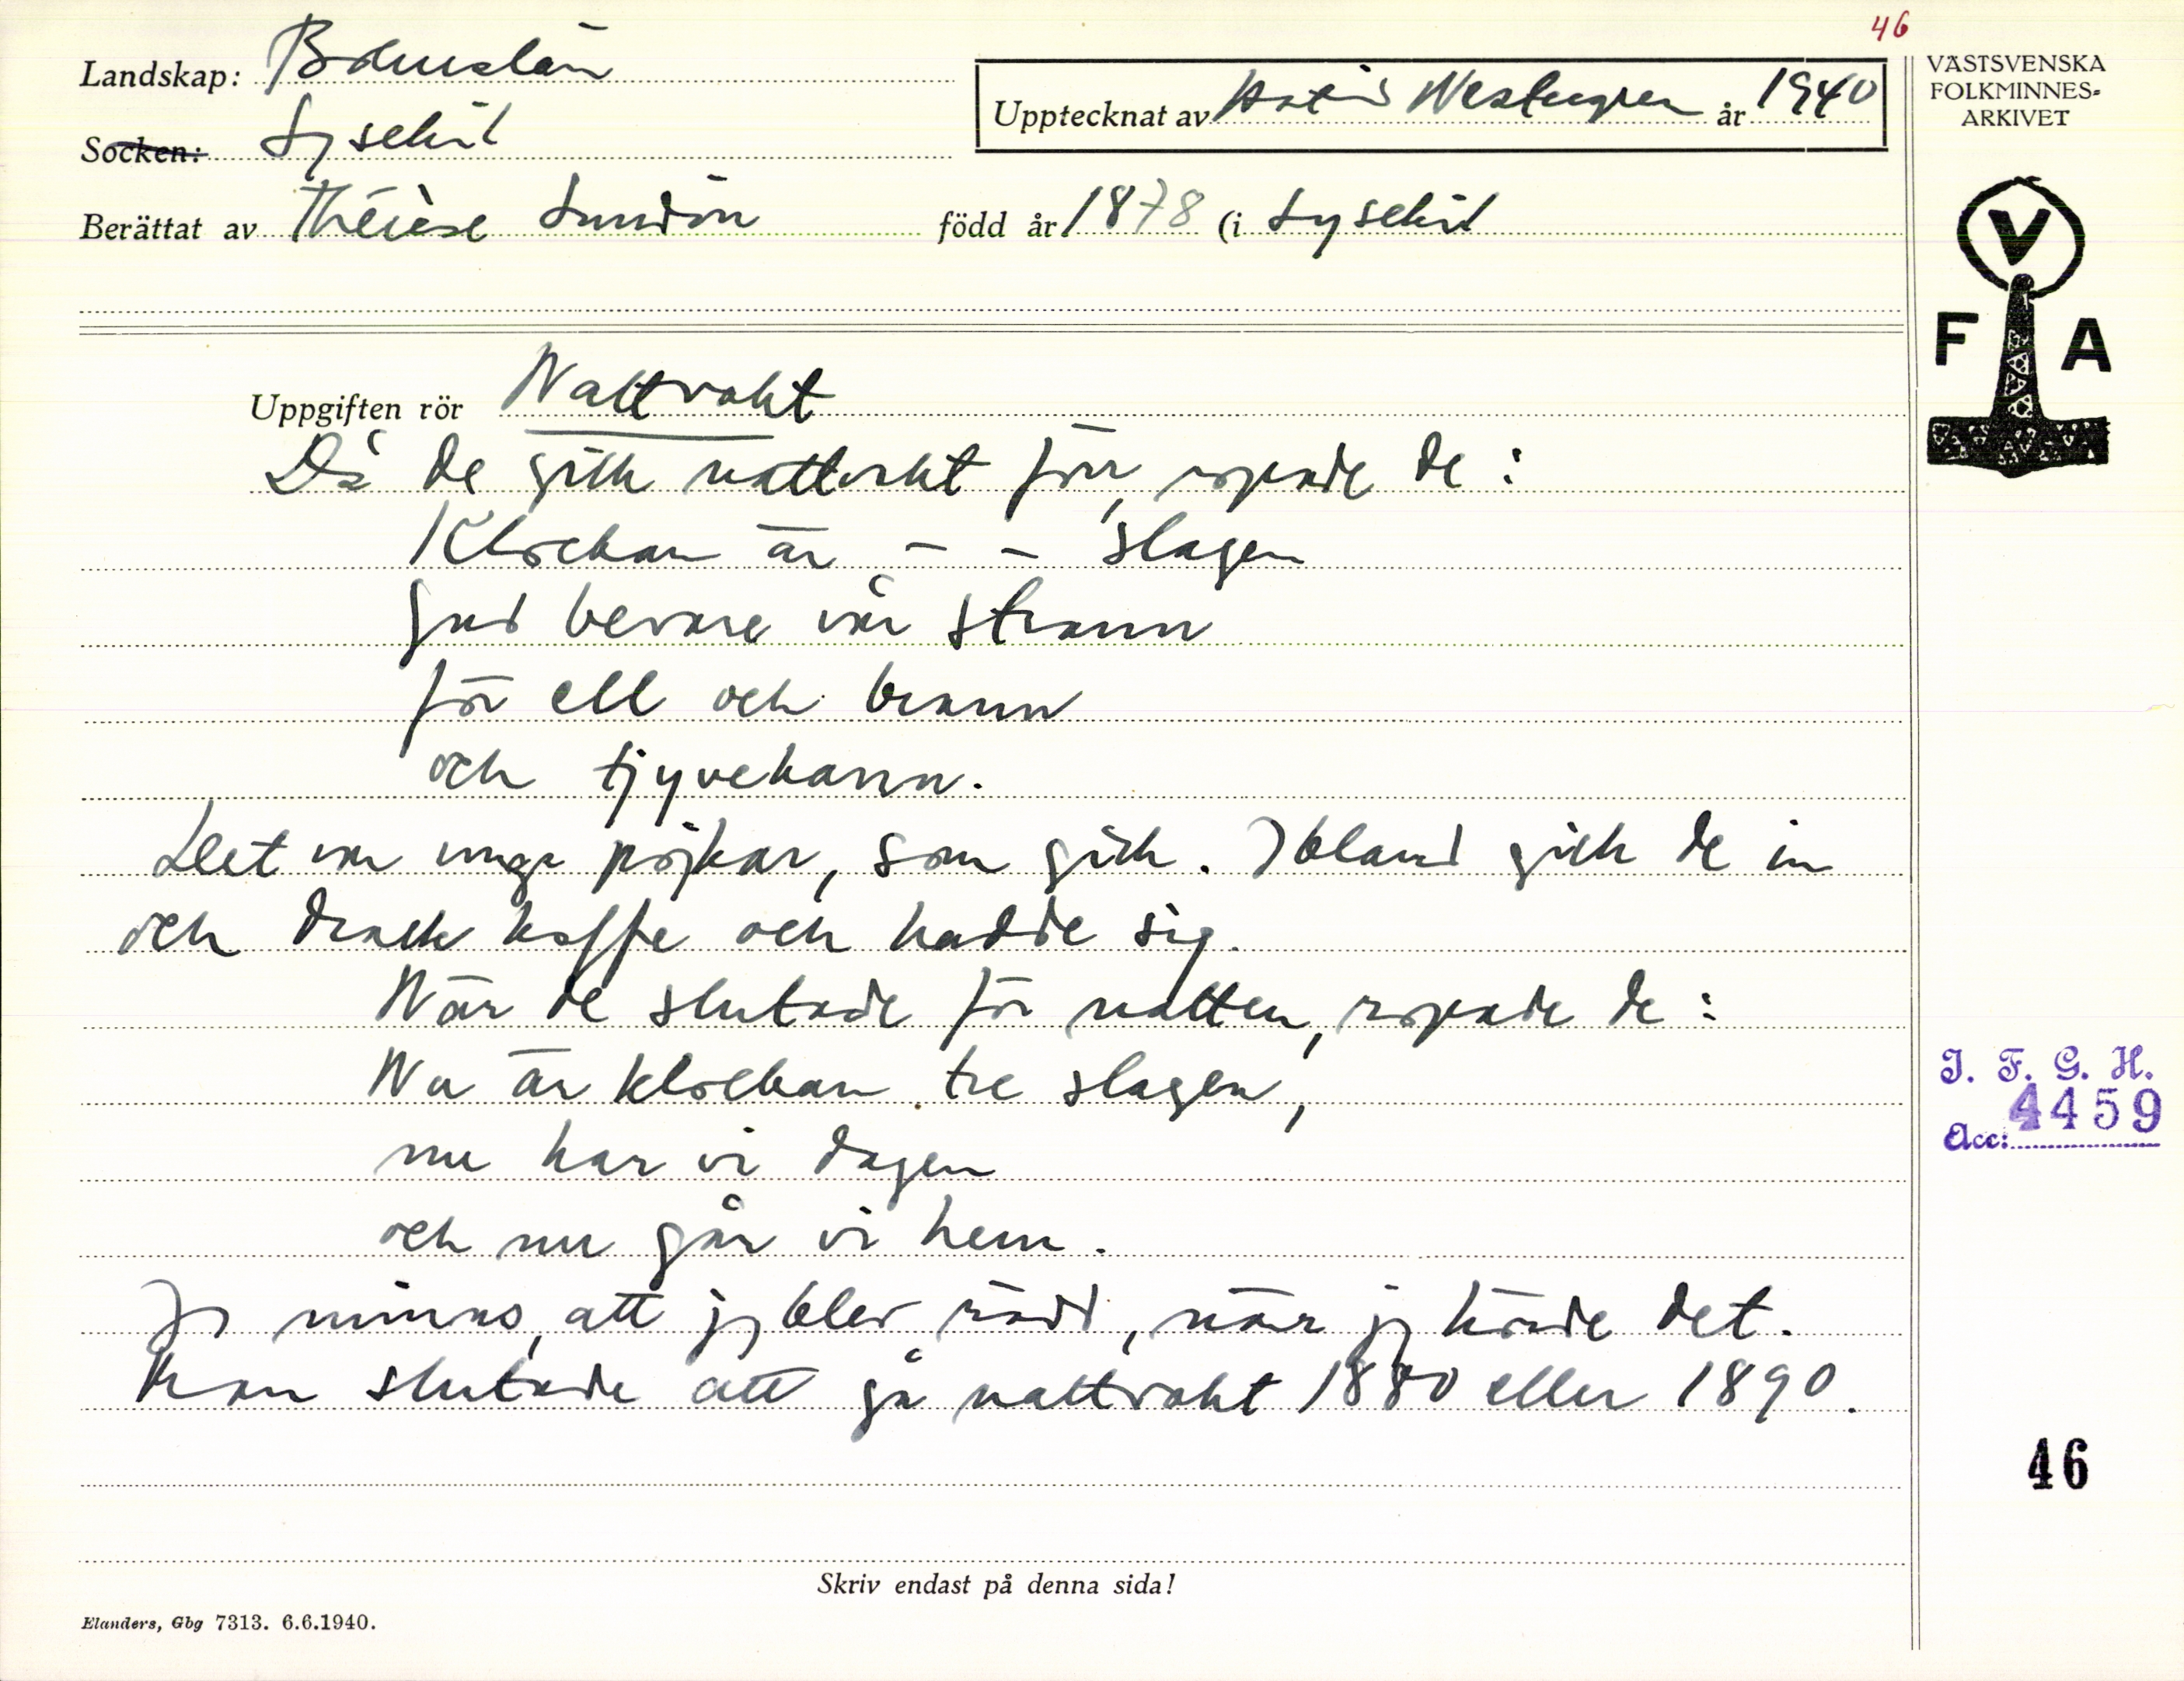 46
Landskap: Bohuslän
Socken: Lysekil
Upptecknat av Westergren år 1940
Berättat av Thérèse Lundin född år 1878 (i Lysekil
VÄSTSVENSKA
FOLKMINNES-
ARKIVET
V
F A
Uppgiften rör Nattvakt
Då de gick nattvakt förr, ropade de:
Klockan är – – slagen
Gud bevare vår strann
för ell och brann
och tjyvehann.
Det var unga pojkar, som gick. Ibland gick de in
och drack kaffe och hadde sig.
När de slutade för natten, ropade de:
Nu är klockan tre slagen,
nu har vi dagen
och nu går vi hem.
Jag minns, att jag blev rädd, när jag hörde det.
Man slutade att gå nattvakt 1880 eller 1890.
I. F. G. H.
Acc: 4459
46
Skriv endast på denna sida!
Elanders, Gbg 7313. 6.6.1940.